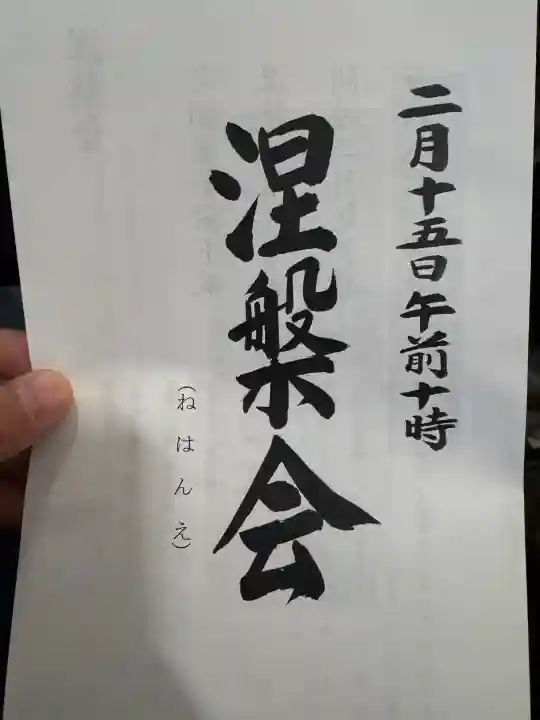 二月十五日午前十時
涅槃会
（ねはんえ）